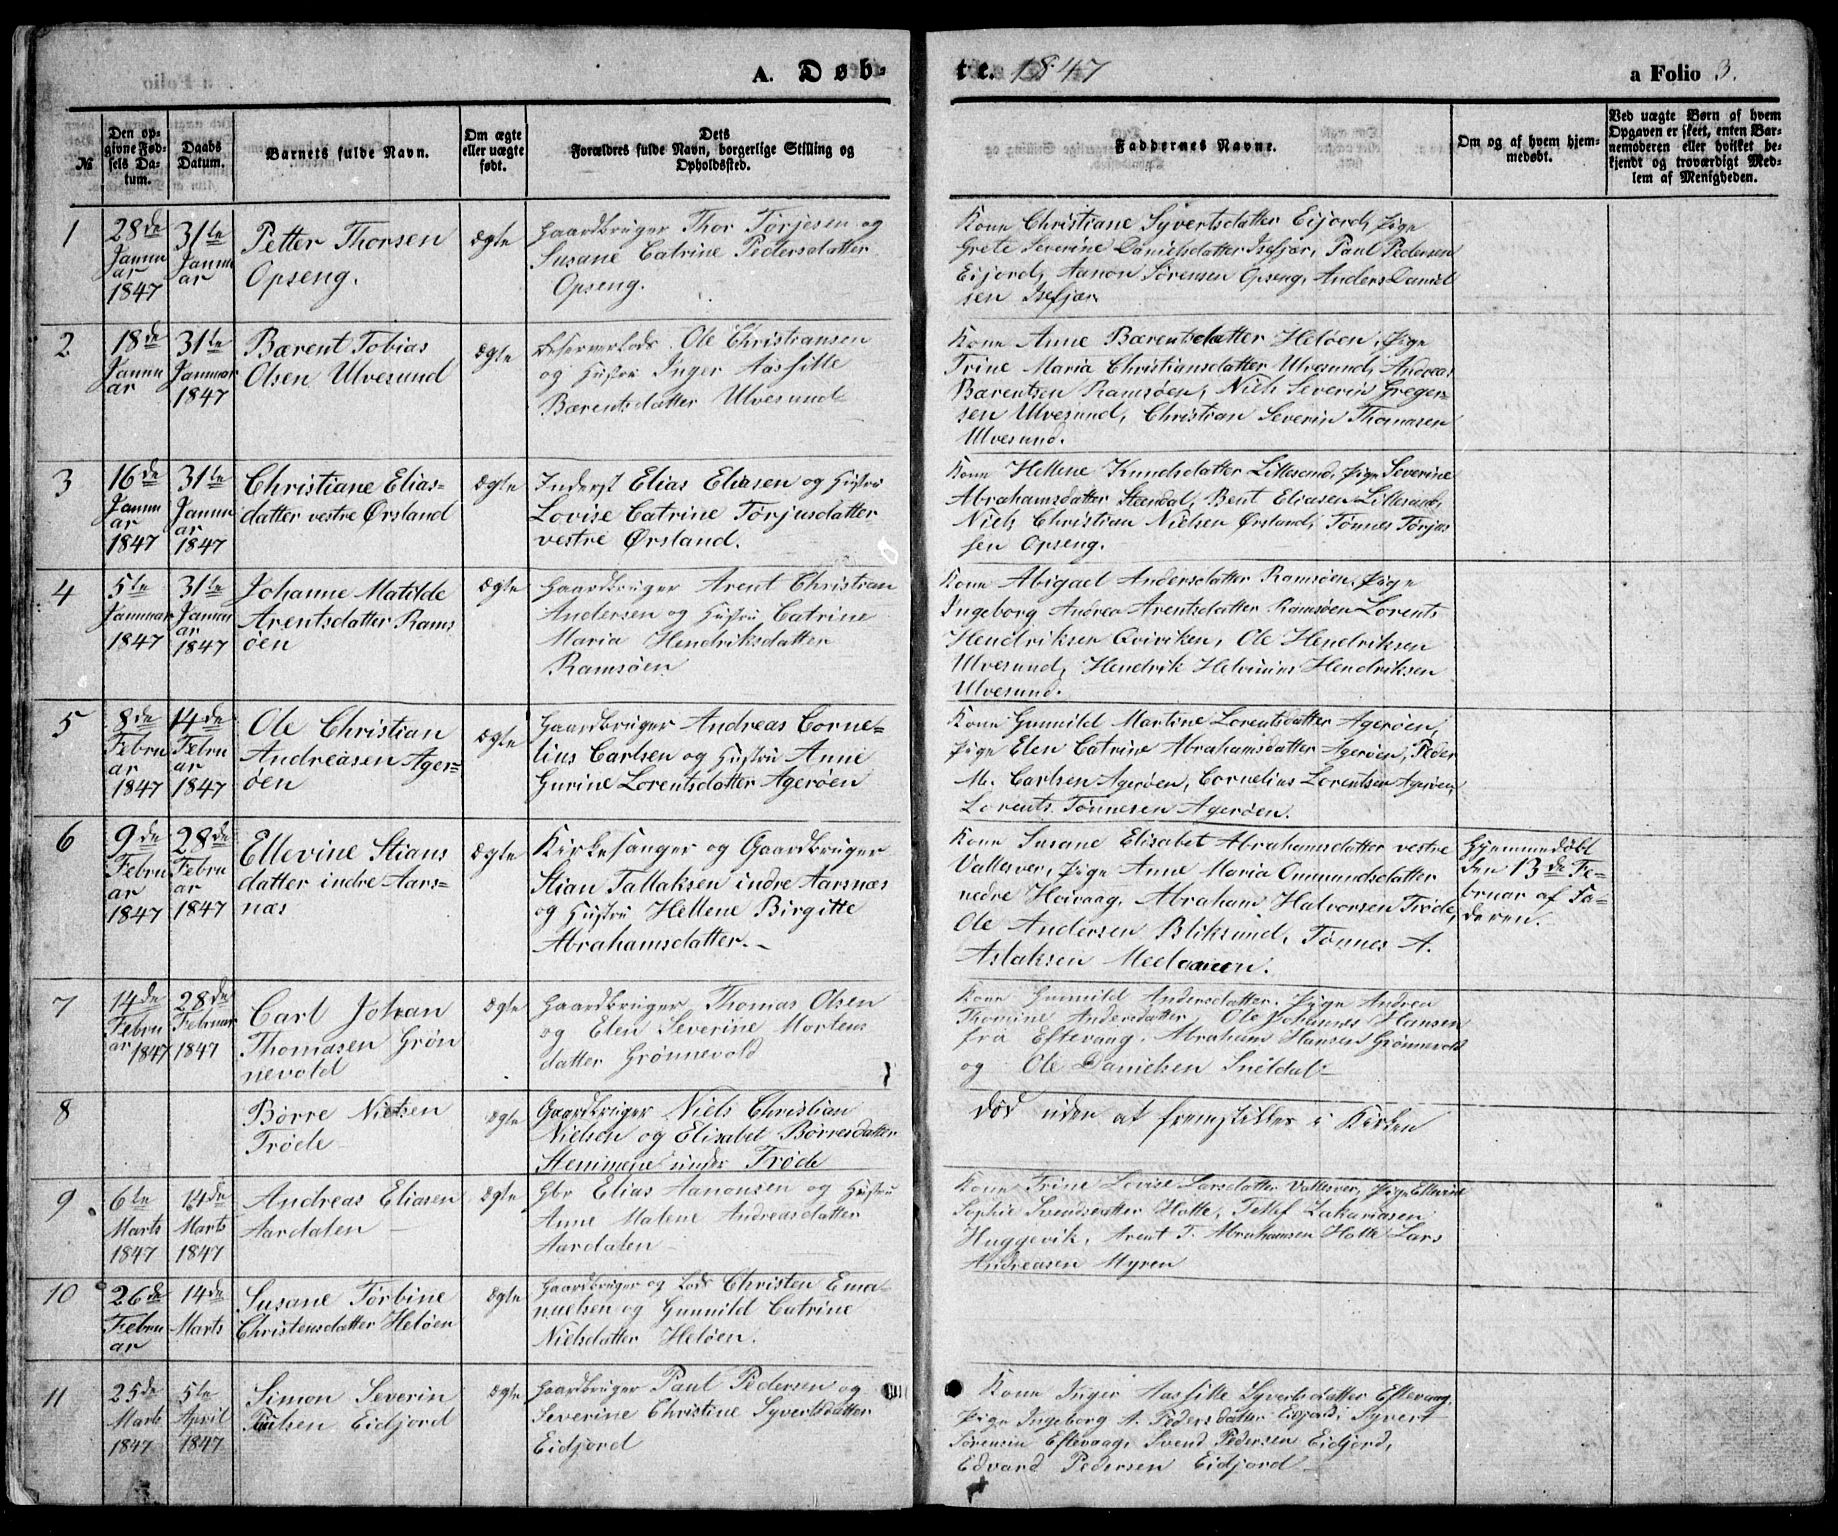 A. Døb-
te. 1847
a Folio 3.
№
Den op-
givne Fød-
sels Da-
tum.
Daabs
Datum.
Barnets fulde Navn.
Om ægte
eller uægte
født.
Dets
Forældres fulde Navn, borgerlige Stilling og
Opholdssted.
Faddernes Navne.
Om og af hvem hjem-
medøbt.
Ved uægte Børn af hvem
Opgaven er skeet, enten Bar-
nemoderen eller hvilket be-
kjendt og troværdigt Med-
lem af Menigheden.
1
28de
Janu
ar
1847
31te
Janu
ar
Petter Thorsen
Opseng.
Ægte
Gaardbruger Thor Tørjesen og
Susane Catrine Pedersdatter
Opseng.
Kone Christiane Syvertsdatter Eijord, Pige
Grete Severine Danielsdatter Isefjær, Paul Pedersen
Eijord, Aanon Sørensen Opseng, Anders Daniel
sen Isefjær
2
18de
Janu
ar
31te
Januar
1847
Bærent Tobias
Olsen Ulvesund
Ægte
Reserverlods Ole Christiansen
og Hustru Inger Aasille
Bærentsdatter Ulvesund
Kone Anne Bærentsdatter Heløen, Pige
Trine Maria Christiansdatter Ulvesund, Andreas
Bærentsen Ramsøen, Niels Severin Greger-
sen Ulvesund, Christian Severin Thomasen
Ulvesund.
3
16de
Janu
ar
1847
31te
Janu
ar
1847
Christiane Elias-
datter vestre Ørsland
Ægte
Inderst Elias Eliasen og Hustru
Lovise Catrine Tørjusdatter
vestre Ørsland.
Kone Hellene Knudsdatter Lillesand, Pige Severine
Abrahamsdatter Steendal, Bent Eliasen Lillesand,
Niels Christian Nielsen Ørsland, Tønnes Tørjes
sen Opseng.
4
5te
Januar
1847
31te
Janu
ar
1847
Johanne Matilde
Arentsdatter Rams
øen
Ægte
Gaardbruger Arent Christian
Andersen og Hustru Catrine
Maria Hendriksdatter
Ramsøen
Kone Abigael Andersdatter Ramsøen, Pige
Ingeborg Andrea Arentsdatter Ramsøen Lorents
Hendriksen Qviviken, Ole Hendriksen
Ulvesund, Hendrik Helvinius Hendriksen
Ulvesund.
5
8de
Febru
ar
1847
14de
Febru
ar
1847
Ole Christian
Andreasen Ager-
øen
Ægte
Gaardbruger Andreas Corne-
lius Carlsen og Hustru Anne
Gurine Lorentsdatter Agerøen
Kone Gunnild Martine Lorentsdatter Agerøen,
Pige Elen Catrine Abrahamsdatter Agerøen, Peder
M. Carlsen Agerøen, Cornelius Lorentsen Agerøen,
Lorents Tønnesen Agerøen.
6
9de
Febru
ar
1847
28de
Febru
ar
1847
Ellevine Stians
datter indre Aars-
næs
Ægte
Kirkesanger og Gaardbruger
Stian Tallaksen indre Aarsnæs
og Hustru Hellene Birgitte
Abrahamsdatter. -
Kone Susane Elisabet Abrahamsdatter vestre
Vallesver, Pige Anne Maria Omundsdatter
nedre Høivaag, Abraham Halvorsen Trøde,
Ole Andersen Bliksund, Tønnes A.
Aslaksen
Hjemmedøbt
den 13de Fe-
bruar af Fa-
deren.
7
14de
Febru
ar 1847
28de
Februar
1847
Carl Johan
Thomasen Grøn
nevold
Ægte
Gaardbruger Thomas Olsen
og Elen Severine Mortens
datter Grønnevold
Kone Gunnild Andersdatter. Pige Andrea
Thomine Andersdatter, Ole Johannes Hansen
fra Eftevaag, Abraham Hansen Grønnevold
og Ole Danielsen
8
Børre Nielsen
Trøde
Ægte
Gaardbruger Niels Christian
Nielsen og Elisabet Børresdatter
Stemmene under Trøde
død uden at fremstilles i Kirken
9
6te
Marts
1847
14de
Marts
1847
Andreas Eliasen
Aardalen
Ægte
Gbr Elias Aanonsen og Hustru
Anne Malene Andreasdatter
Aardalen
Kone Trine Lovise Larsdatter Vallesver, Pige Ellevine
Sophie Svendsdatter Holte, Tellef Zakariasen
Huggevik, Arent T. Abrahamsen Holte Lars
Andreasen Myren
10
26de
Febru
ar
14de
Marts
Susane Torbine
Christensdatter Heløen
Ægte
Gaardbruger og Lods Christen Ema-
nuelsen og Gunnild Catrine
Nielsdatter Heløen.
11
25de
Marts
1847
5te
April
1847
Simon Severin
Paulsen Eidjord
Ægte
Gaardbruger Paul Pedersen og
Severine Christine Syvertsdatter
Eidjord
Kone Inger Aasille Syvertsdatter Eftevaag,
Pige Ingeborg A. Pedersdatter Eidjord, Syvert
Sørensen Eftevaag, Svend Pedersen Eidjord,
Edvard Pedersen Eidjord